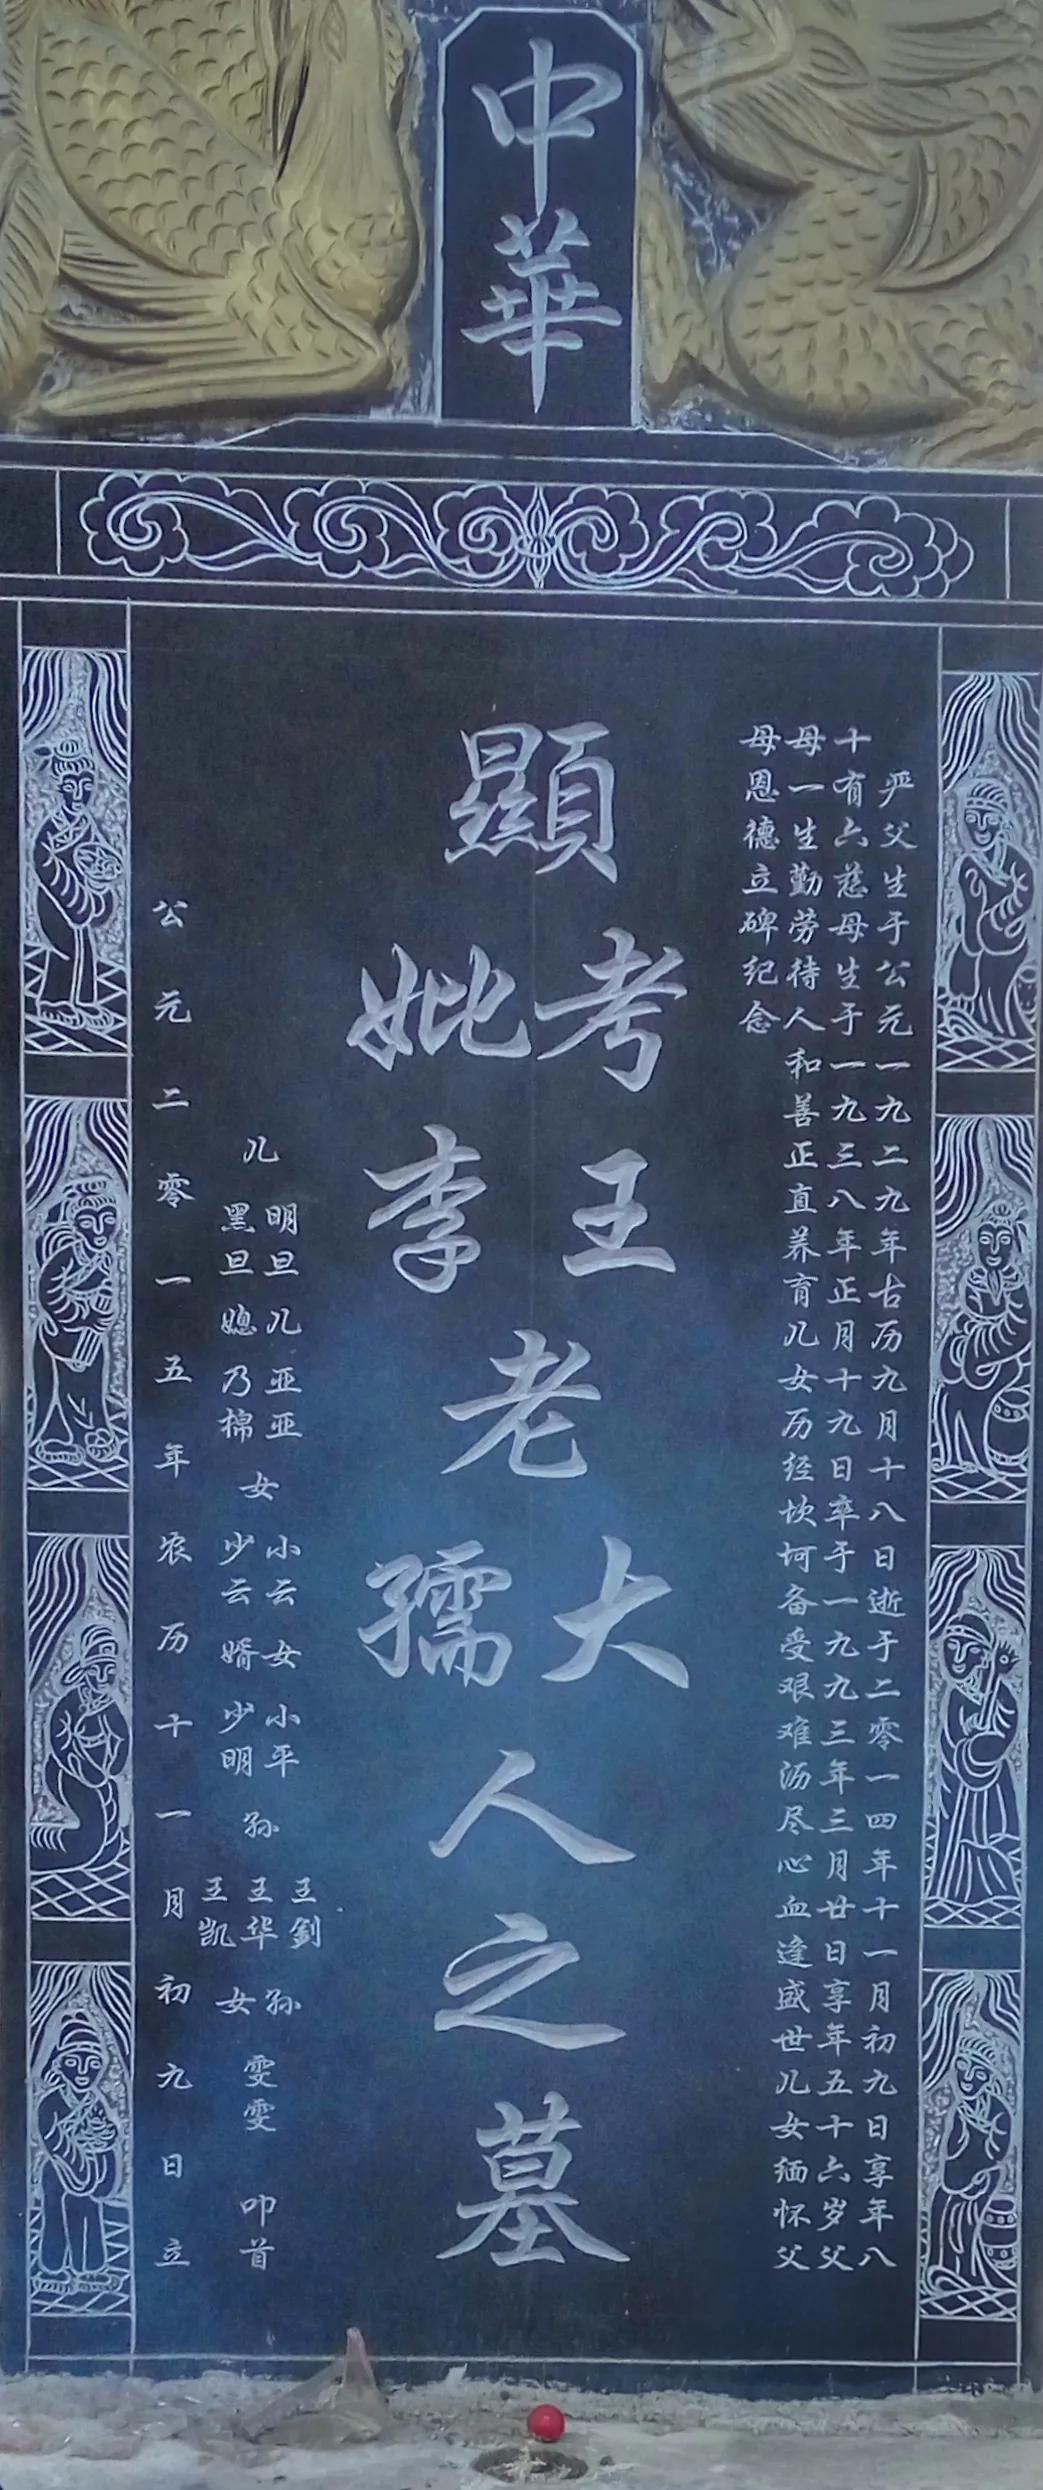 中華
严父生于公元一九二九年古历九月十八日逝于二零一四年十一月初九日享年八
十有六慈母生于一九三八年正月十九日卒于一九九三年三月廿日享年五十六岁父
母一生勤劳待人和善正直养育儿女历经坎坷备受艰难沥尽心血逢盛世儿女缅怀父
母恩德立碑纪念
顯
考王
妣李
老
大
孺
人之墓
儿
明旦儿亚亚
黑旦媳乃棉
女
小云女小平
少云婿少明
孙
王釗
王华
王凯
孙女
雯雯
叩首
公元二零一五年农历十一月初九日立